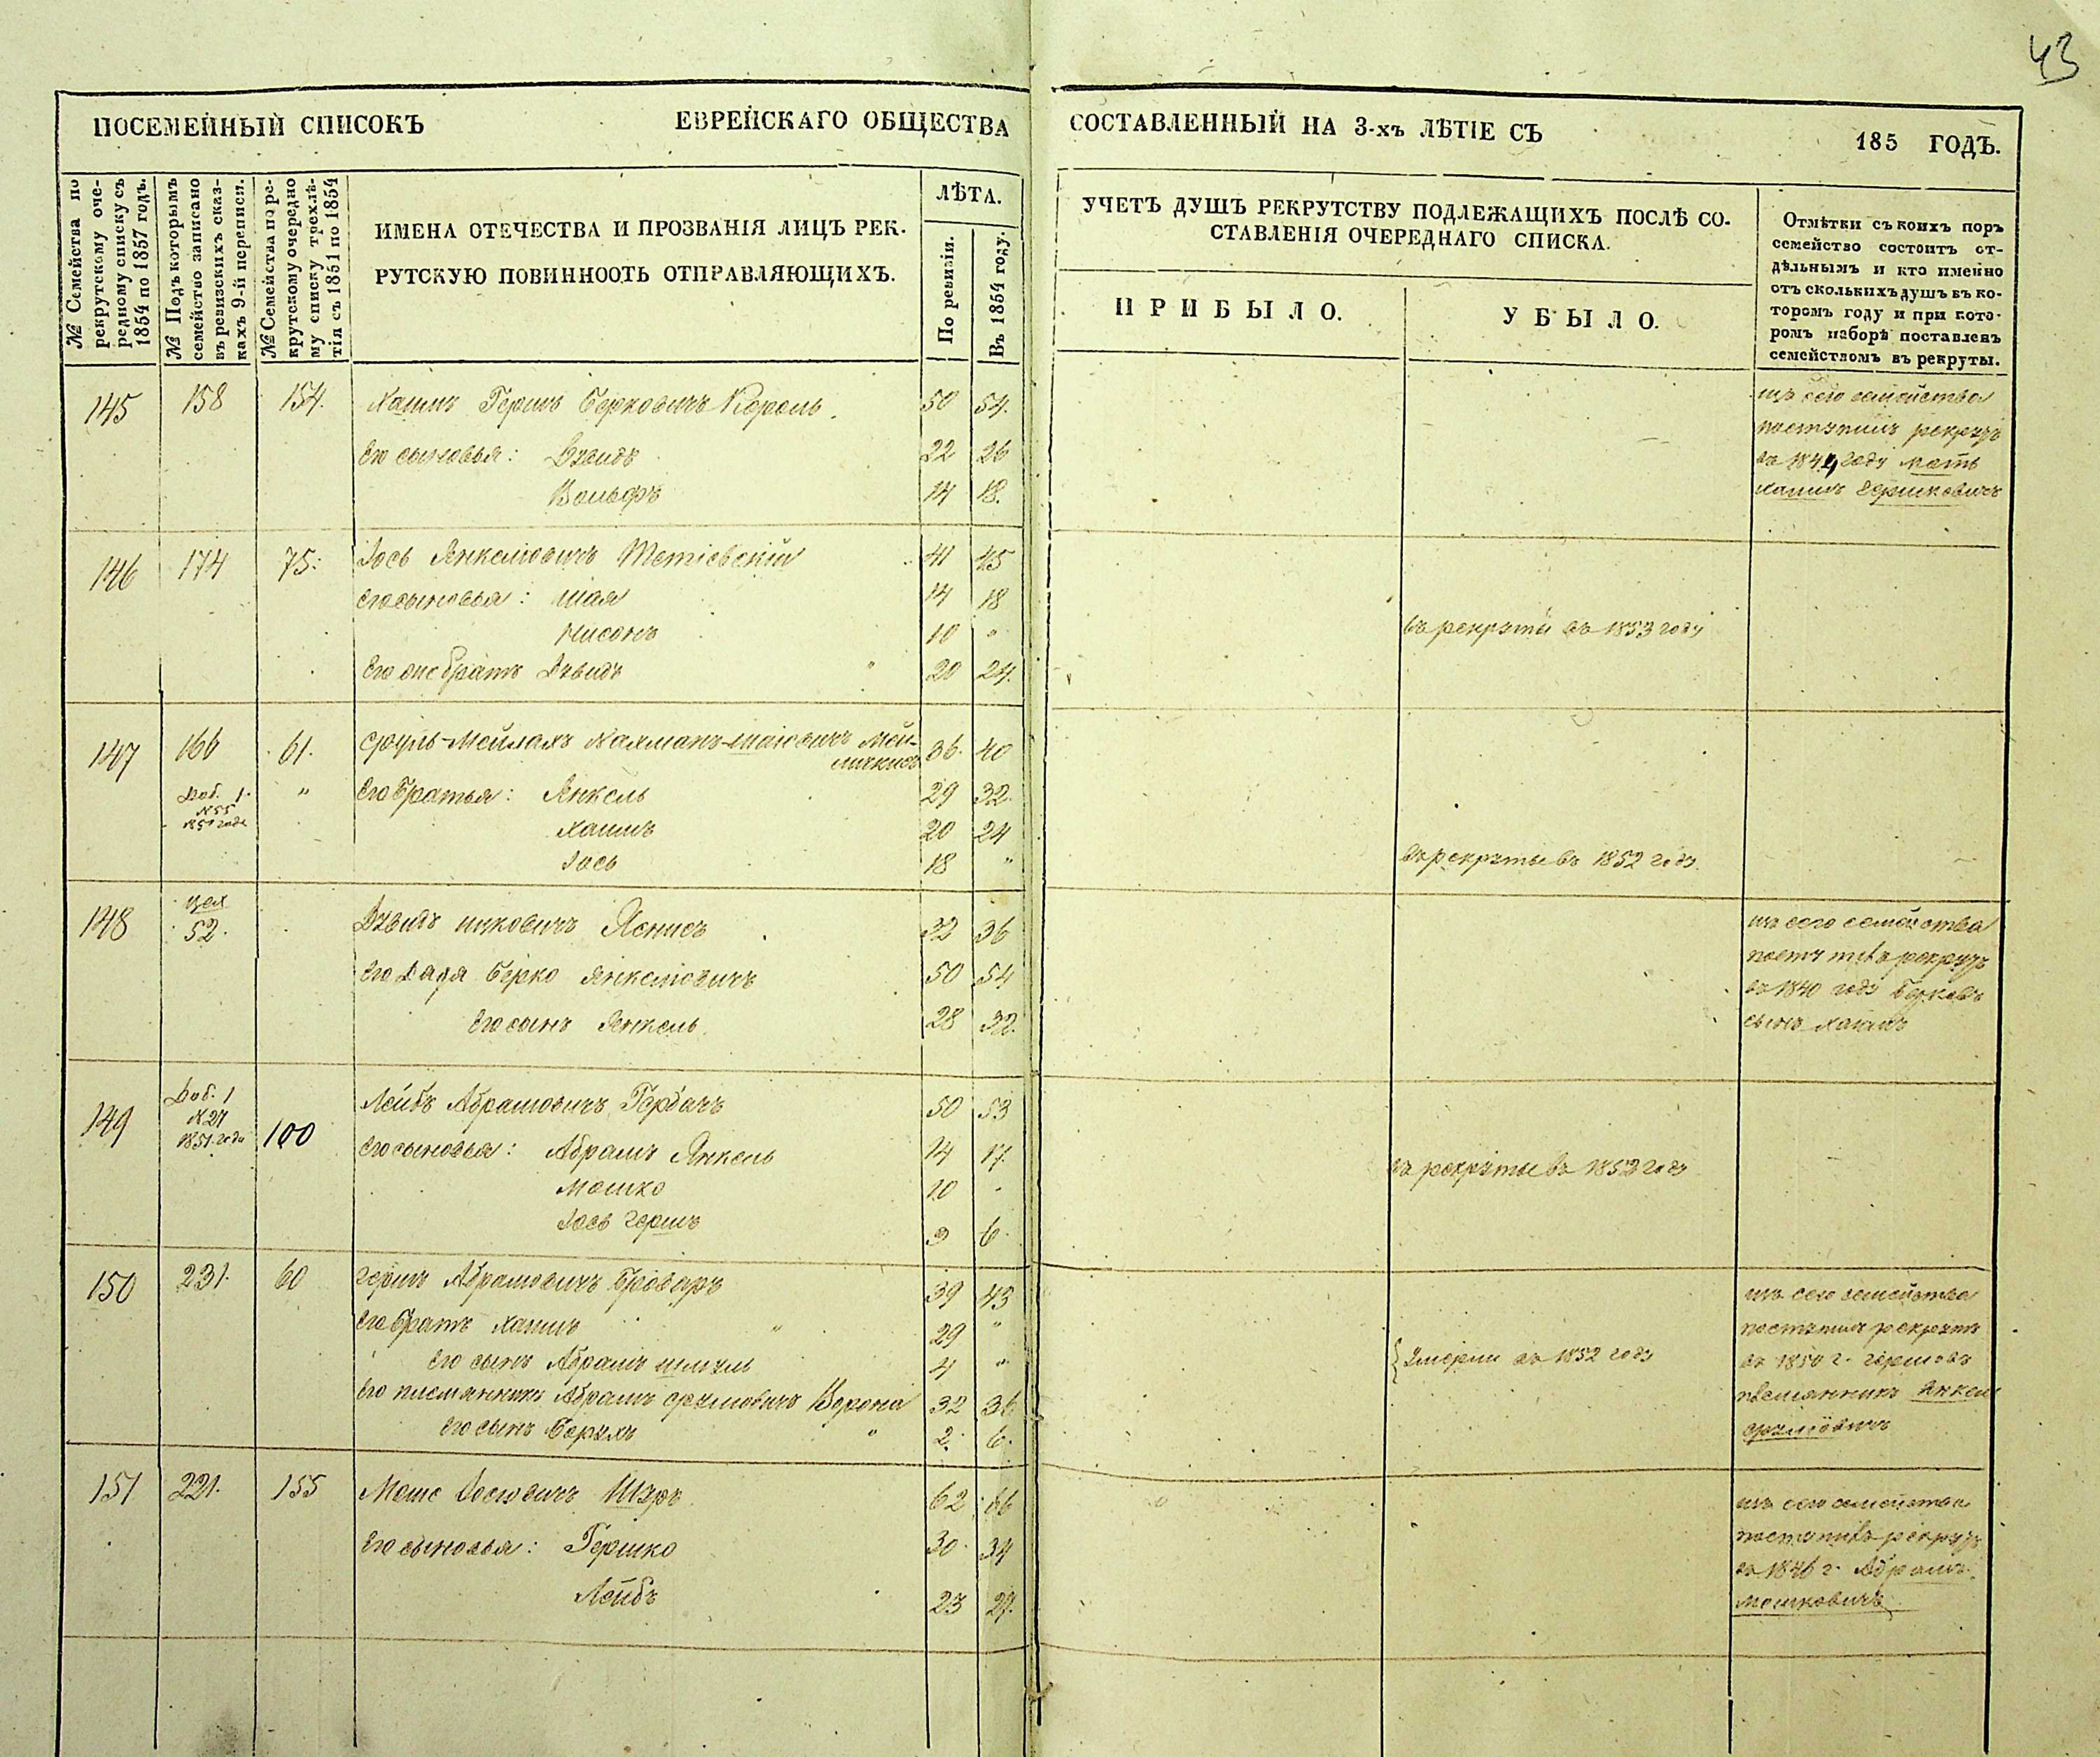 43
ПОСЕМЕЙНЫЙ СПИСОКЪ ЕВРЕЙСКАГО ОБЩЕСТВА СОСТАВЛЕННЫЙ НА 3-хъ ЛѢТІЕ СЪ 185 ГОДЪ.
№ Семейства по
рекрутскому оче-
редному списку съ
1854 по 1857 годъ.
№ Подъ которымъ
семейство записано
въ ревизскихъ сказ-
кахъ 9-й переписи.
№ Семейства по ре-
крутскому очередно
му списку трехлѣ-
тія съ 1851 по 1854
ИМЕНА ОТЕЧЕСТВА И ПРОЗВАНІЯ ЛИЦЪ РЕК-
РУТСКУЮ ПОВИННООТЬ ОТПРАВЛЯЮЩИХЪ.
ЛѢТА.
По ревизіи.
Въ 1854 году.
УЧЕТЪ ДУШЪ РЕКРУТСТВУ ПОДЛЕЖАЩИХЪ ПОСЛѢ СО-
СТАВЛЕНІЯ ОЧЕРЕДНАГО СПИСКА.
ПРИБЫЛО.
УБЫЛО.
Отмѣтки съ коихъ поръ
семейство состоитъ от-
дѣльнымъ и кто именно
отъ сколькихъ душъ въ ко-
торомъ году и при кото-
ромъ наборѣ поставленъ
семействомъ въ рекруты.
145 158 154. Хаимъ Гершъ Берковичъ Король. 50 54.
Его сыновья: Дувидъ 22 26
Вольфъ 14 18.
изъ сего семейства
поступилъ рекрутъ
въ 1844 году
Хаимъ Гершковичъ
146 174 75: Іось Янкелювичъ Тетіевскій 41 45
Его сыновья: Шая 14 18
Нисонъ 10 " въ рекруты въ 1853 году
Его же братъ Дувидъ 20 24.
147 166 61. Сруль-Мейлахъ Нахманъ-Шаіовичъ Мей-
36. 40
Доб. 1.
№ 55
1851 года
" Его братья: Янкель 29 32.
Хаимъ 20 24
Іось 18 " въ рекруты въ 1852 году.
148 цех
52.
Дувидъ Ицковичъ Ясинсъ 32 36
Его дядя Берко Янкелювичъ 50 54
Его сынъ Янкель 28 32.
изъ сего семейства
поступилъ рекрутъ
въ 1840 году Берковъ
сынъ Хаимъ
149 Доб. 1
№ 27
1851 года
100 Лейбъ Абрамовичъ Гербачъ 50 53
Его сыновья: Абрамъ Янкель 14 17.
Мошко 10 " въ рекруты въ 1852 году
Іось Гершъ 3 6.
150 231. 60 Гершъ Абрамовичъ Броваръ 39 43
Его братъ Хаимъ 29 "
Его сынъ Абрамъ Шмуль 4 " умерли въ 1852 году
Его племянникъ Абрамъ Срулювичъ Ворона 32 36
Его сынъ Борухъ 2. 6.
изъ сего семейства
поступилъ рекрутъ
въ 1850 г. Гершовъ
племянникъ Янкель
Срулювичъ
151 221. 155 Моше Іосювичъ Шуръ 62 66
Его сыновья: Гершко 30. 34
Лейбъ 23 27.
изъ сего семейства
поступилъ рекрутъ
въ 1846 г. Абрамъ
Мошковичъ